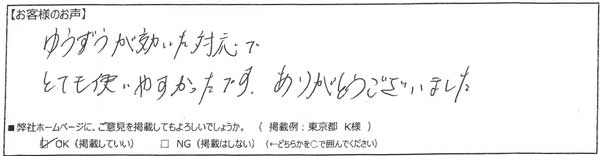 【お客様のお声】
ゆうずうが効いた対応で
とても使いやすかったです。ありがとうございました
■弊社ホームページに、ご意見を掲載してもよろしいでしょうか。（掲載例：東京都 K様）
☑ OK（掲載していい） □ NG（掲載はしない）（←どちらかを○で囲んでください）